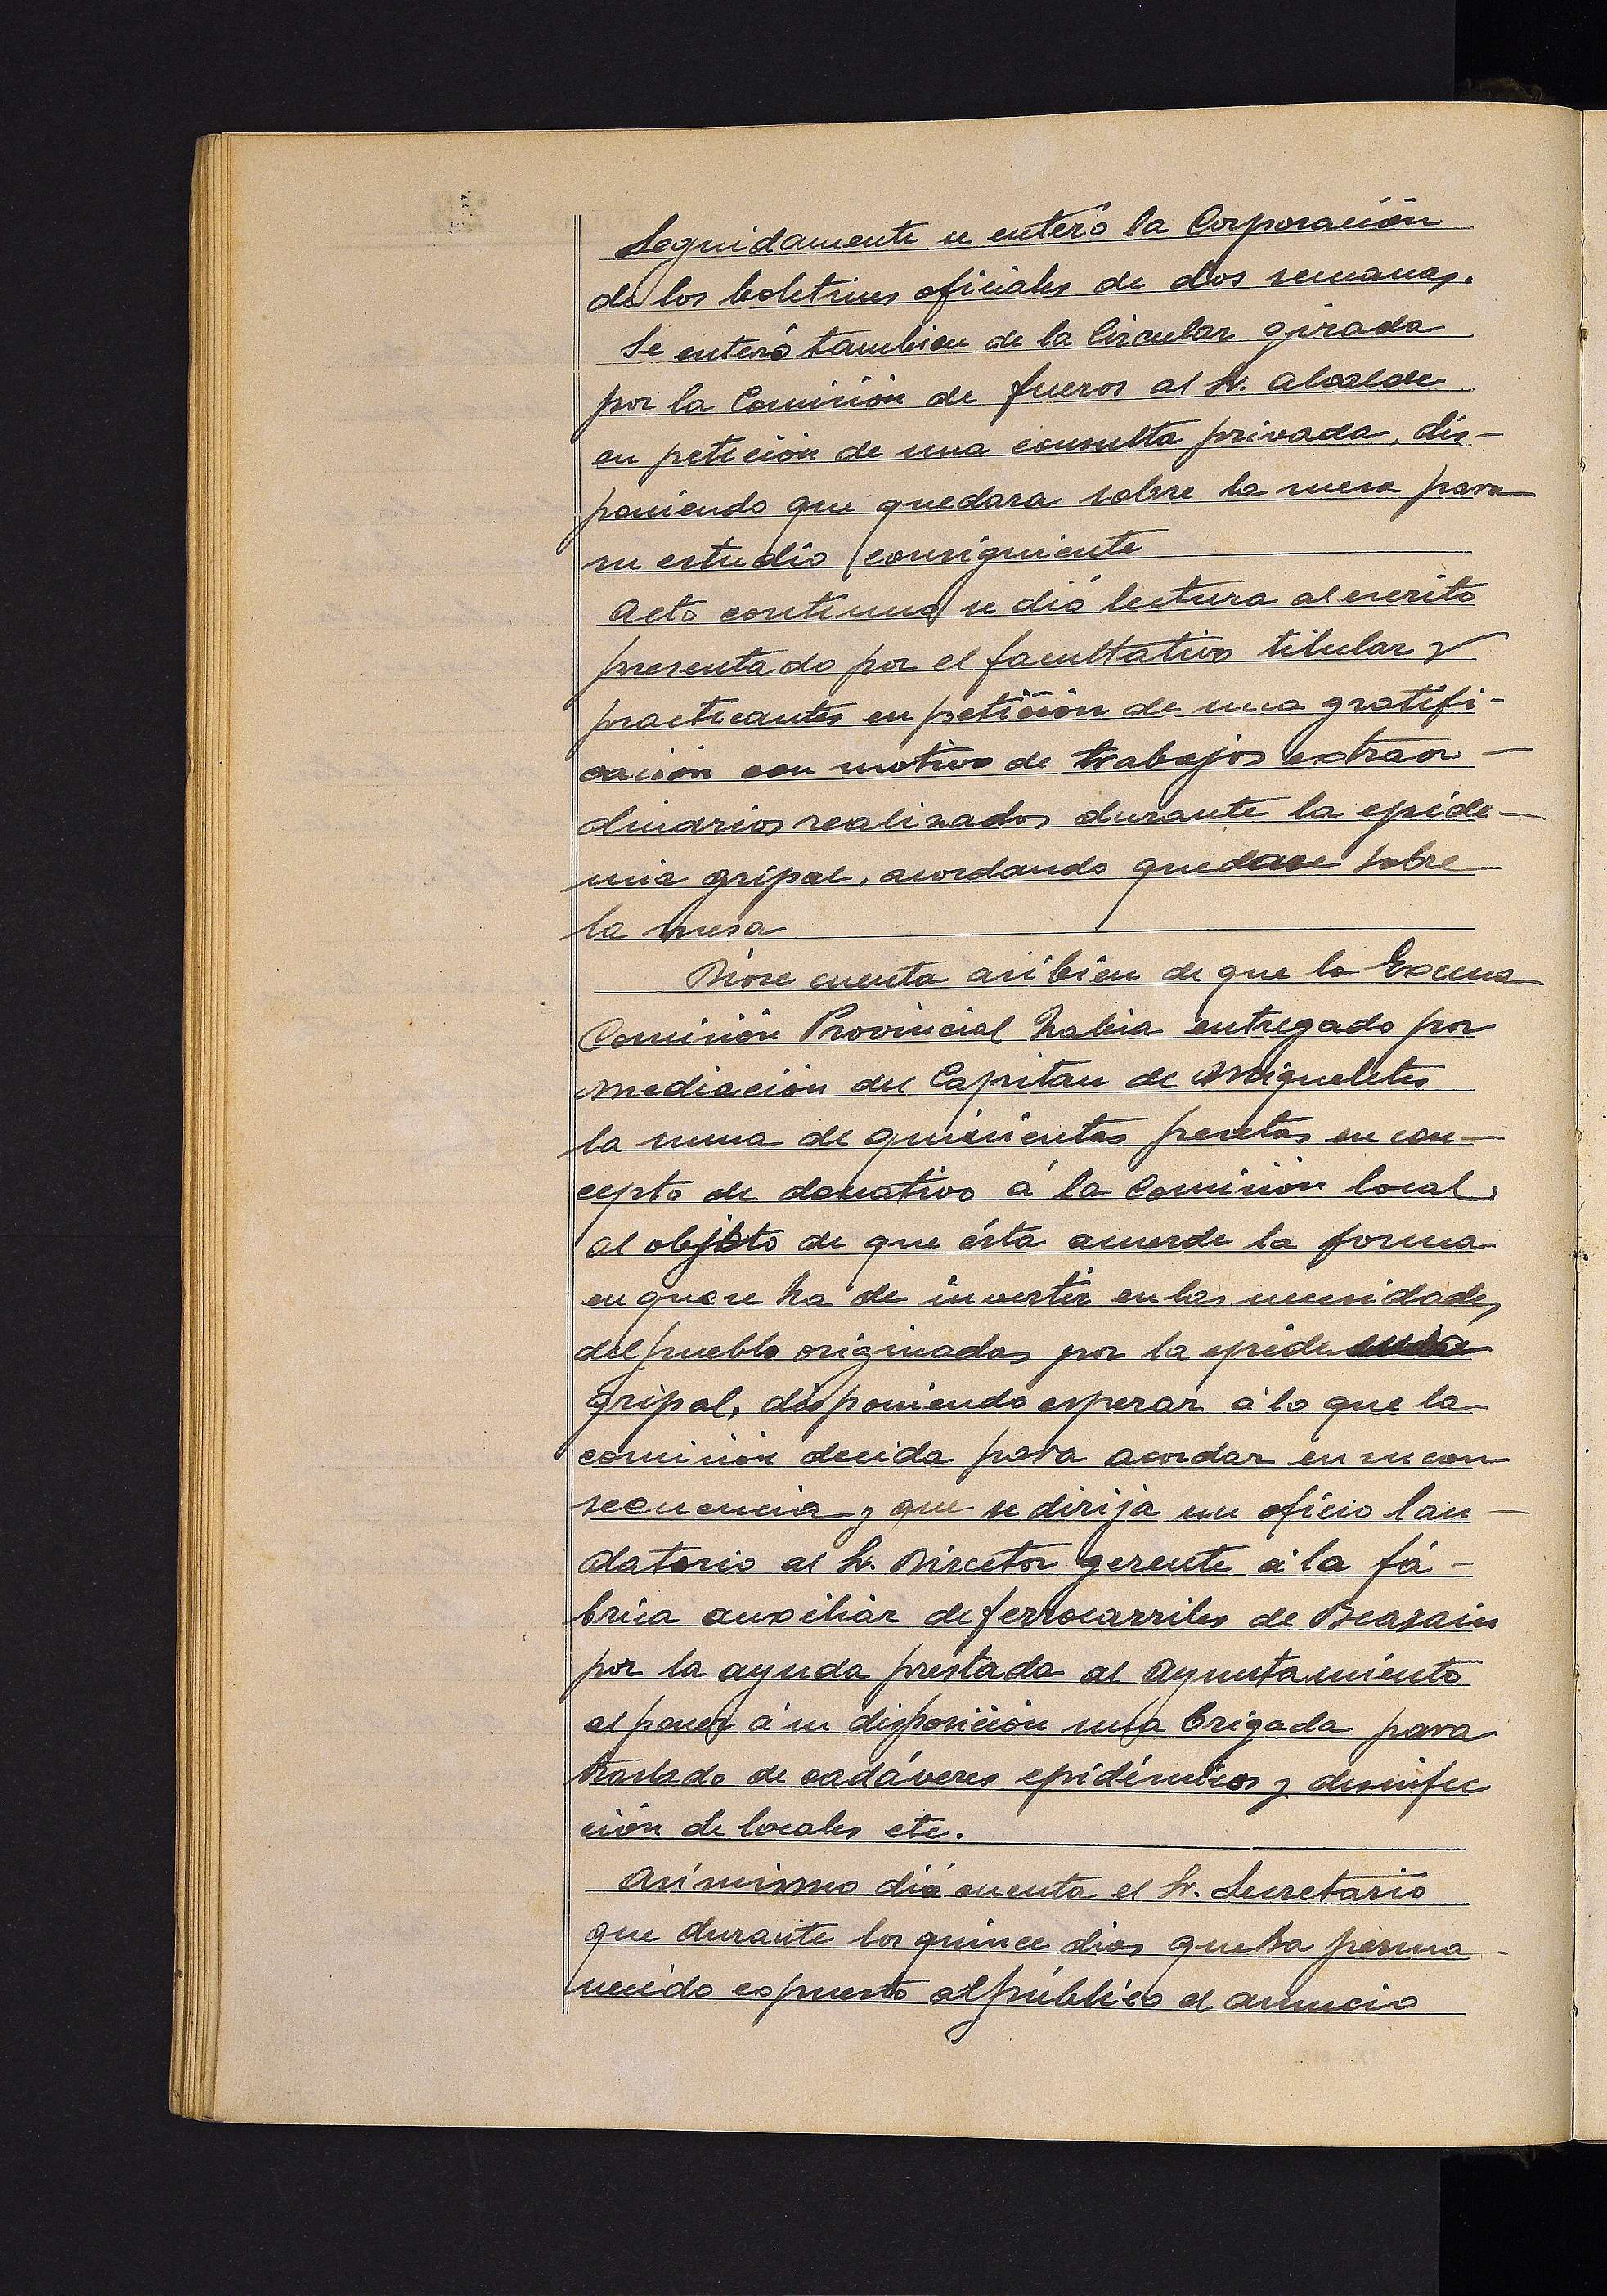 Seguidamente se enteró la Corporación
de los boletines oficiales de dos semanas.
Se enteró tambien de la Circular girada
por la Comisión de fueros al Sr. Alcalde
en petición de una consulta privada, dis-
poniendo que quedara sobre la mesa para
su estudio consiguiente
Acto continuo se dió lectura al escrito
presentado por el facultativo titular y
practicantes en petición de una gratifi-
cación con motivo de trabajos extraor-
dinarios realizados durante la epide-
mia gripal, acordando quedase sobre
la mesa
Dióse cuenta asibien de que la Excma
Comisión Provincial habia entregado por
mediación del Capitan de Migueletes
la suma de quinientas pesetas en con-
cepto de donativo á la Comisión local,
al objeto de que ésta acuerde la forma
en que se ha de invertir en las necesidades
del pueblo originadas por la epidemia
gripal, disponiendo esperar á lo que la
comisión decida para acordar en su con
secuencia y que se dirija un oficio lau-
datorio al Sr. Director gerente á la fá-
brica auxiliar de ferrocarriles de Beasain
por la ayuda prestada al Ayuntamiento
al poner á su disposición una brigada para
traslado de cadáveres epidémicos y desinfec
ción de locales etc.
Asímismo dió cuenta el Sr. Secretario
que durante los quince dias que ha perma-
necido espuesto al público el anuncio